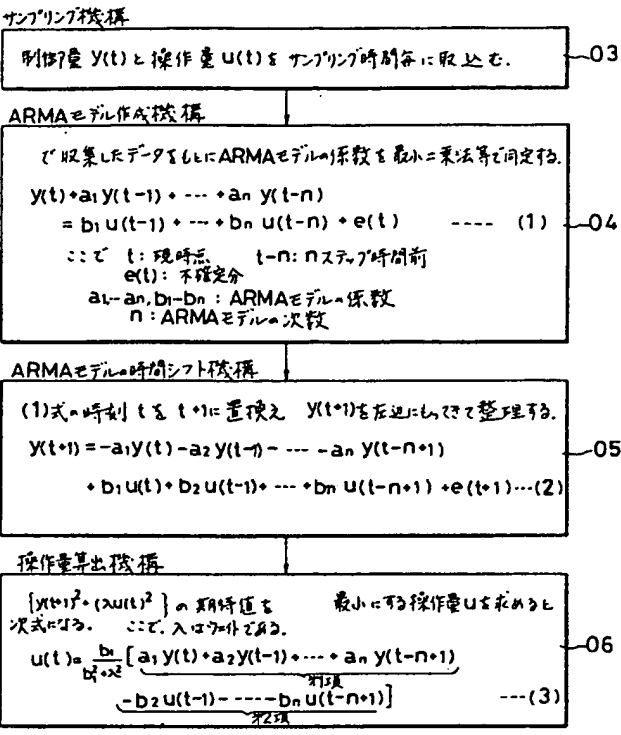 サンプリング機構
制御量 y(t)と操作量u(t)をサンプリング時間毎に取込む.
03
ARMAモデル作成機構
で収集したデータをもとにARMAモデルの係数を最小二乗法等で同定する.
y(t)+a₁y(t-1)+ --- +an y(t-n)
= b₁u(t-1)+ --- +bn u(t-n) +e(t) ---- (1)
04
ここで t: 現時点 t-n: nステップ時間前
e(t): 不確定分
a₁--an, b₁-bn : ARMAモデルの係数
n : ARMAモデルの次数
ARMAモデルの時間シフト機構
(1)式の時刻 t を t+1に置換え y(t+1)を左辺にもってきて整理する.
y(t+1) = -a₁y(t) -a₂ y(t-1)- --- -an y(t-n+1)
05
+ b₁u(t)+ b₂ u(t-1)+ --- +bn u(t-n+1) +e(t+1)---(2)
操作量算出機構
{y(t+1)²+(λu(t)²} の期待値を 最小にする操作量uを求めると
次式になる. ここで, λはウェイトである.
06
u(t)= b₁/b₁²+λ² [a₁ y(t)+a₂y(t-1)+---+ an y(t-n+1)
第1項
-b₂u(t-1)------bn u(t-n+1)] ---(3)
第2項